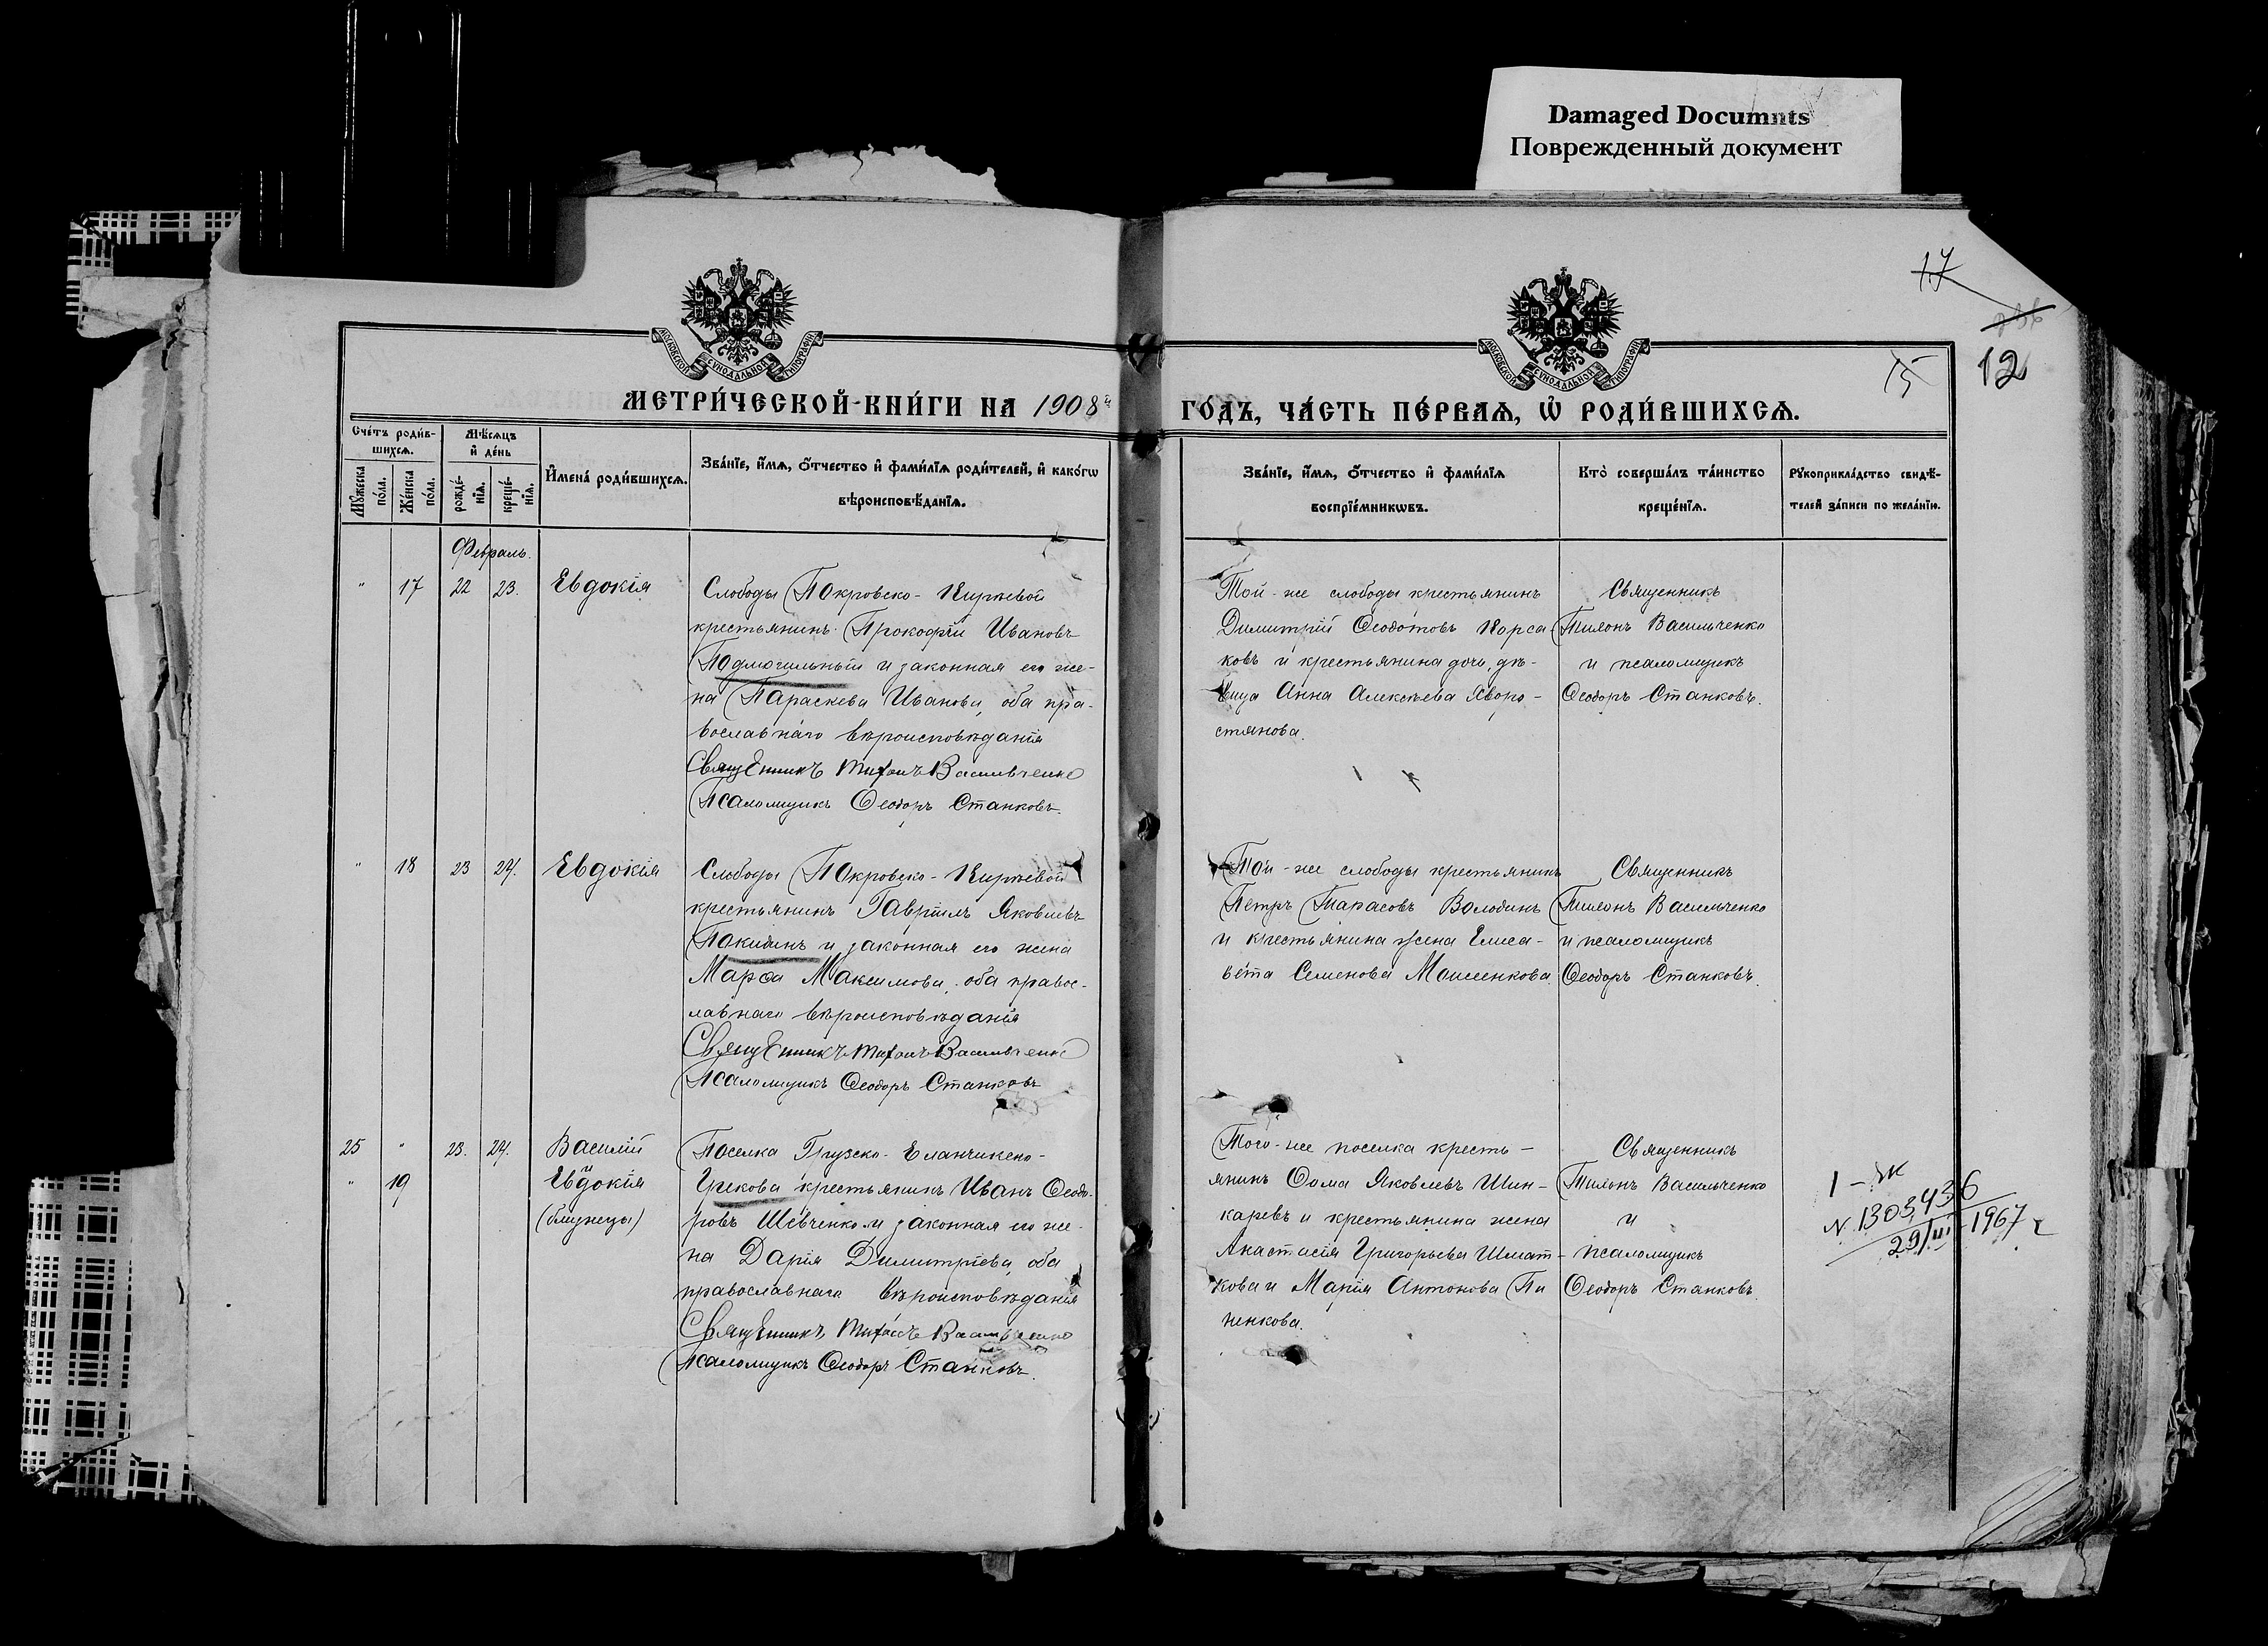 Damaged Documnts
Поврежденный документ
17
12
15
МОСКОВСКОЙ СѴНОДАЛЬНОЙ ТИПОГРАФІИ
МОСКОВСКОЙ СѴНОДАЛЬНОЙ ТИПОГРАФІИ
МЕТРИ́ЧЕСКОЙ КНИ́ГИ НА 1908й
ГО́ДЪ, ЧА́СТЬ ПЕ́РВАѦ, Ѡ҆ РОДИ́ВШИХСѦ.
Сче́тъ роди́в-
шихсѧ.
Мѣ́сѧцъ
и҆ де́нь
Мꙋ́жеска
по́ла.
Же́нска
по́ла.
рожде́-
нїѧ.
креще́-
нїѧ.
И҆мена̀ роди́вшихсѧ.
Зва́нїе, и҆́мѧ, ѻ҆́тчество и҆ фами́лїѧ роди́телей, и҆ како́гѡ
вѣроисповѣ́данїѧ.
Зва́нїе, и҆́мѧ, ѻ҆́тчество и҆ фами́лїѧ
воспрїе́мникѡвъ.
Кто̀ соверша́лъ та́инство
креще́нїѧ.
Рꙋкоприкла́дство свидѣ́-
телей за́писи по жела́нїю.
Февраль.
" 17 22 23. Евдокія
Слободы Покровско-Киреевой
крестьянинъ Прокофій Ивановъ
Подмогильный и законная его же-
на Параскева Иванова, оба пра-
вославнаго вѣроисповѣданія
Священникъ Тихонъ Васильченко
Псаломщикъ Ѳеодоръ Станковъ.
Той-же слободы крестьянинъ
Димитрій Ѳеодотовъ Корса
ковъ и крестьянина дочь, дѣ-
вица Анна Алексѣева Хворо-
стянова.
Священникъ
Тихонъ Васильченко
и псаломщикъ
Ѳеодоръ Станковъ.
" 18 23 24. Евдокія
Слободы Покровско-Киреевой
крестьянинъ Гавріилъ Яковлевъ
Покидинъ и законная его жена
Марѳа Максимова, оба правос-
лавнаго вѣроисповѣданія
Священникъ Тихонъ Васильченко
Псаломщикъ Ѳеодоръ Станковъ
Той-же слободы крестьянинъ
Петръ Тарасовъ Володинъ
и крестьянина жена Елиса-
вета Семенова Моисеенкова.
Священникъ
Тихонъ Васильченко
и псаломщикъ
Ѳеодоръ Станковъ.
25 " 23. 24. Василій
" 19 и Евдокія
(близнецы)
Поселка Грузско-Еланчикско-
Грекова крестьянинъ Иванъ Ѳеодо-
ровъ Шевченко и законная его же-
на Дарія Димитріева, оба
православнаго вѣроисповѣданія
Священникъ Тихонъ Васильченко
Псаломщикъ Ѳеодоръ Станковъ.
Того-же поселка кресть-
янинъ Ѳома Яковлевъ Шин-
каревъ и крестьянина жена
Анастасія Григорьева Шмат-
кова и Марія Антонова Пи
ненкова.
Священникъ
Тихонъ Васильченко
и
псаломщикъ
Ѳеодоръ Станковъ.
N. 1303436
29/III-1967 г